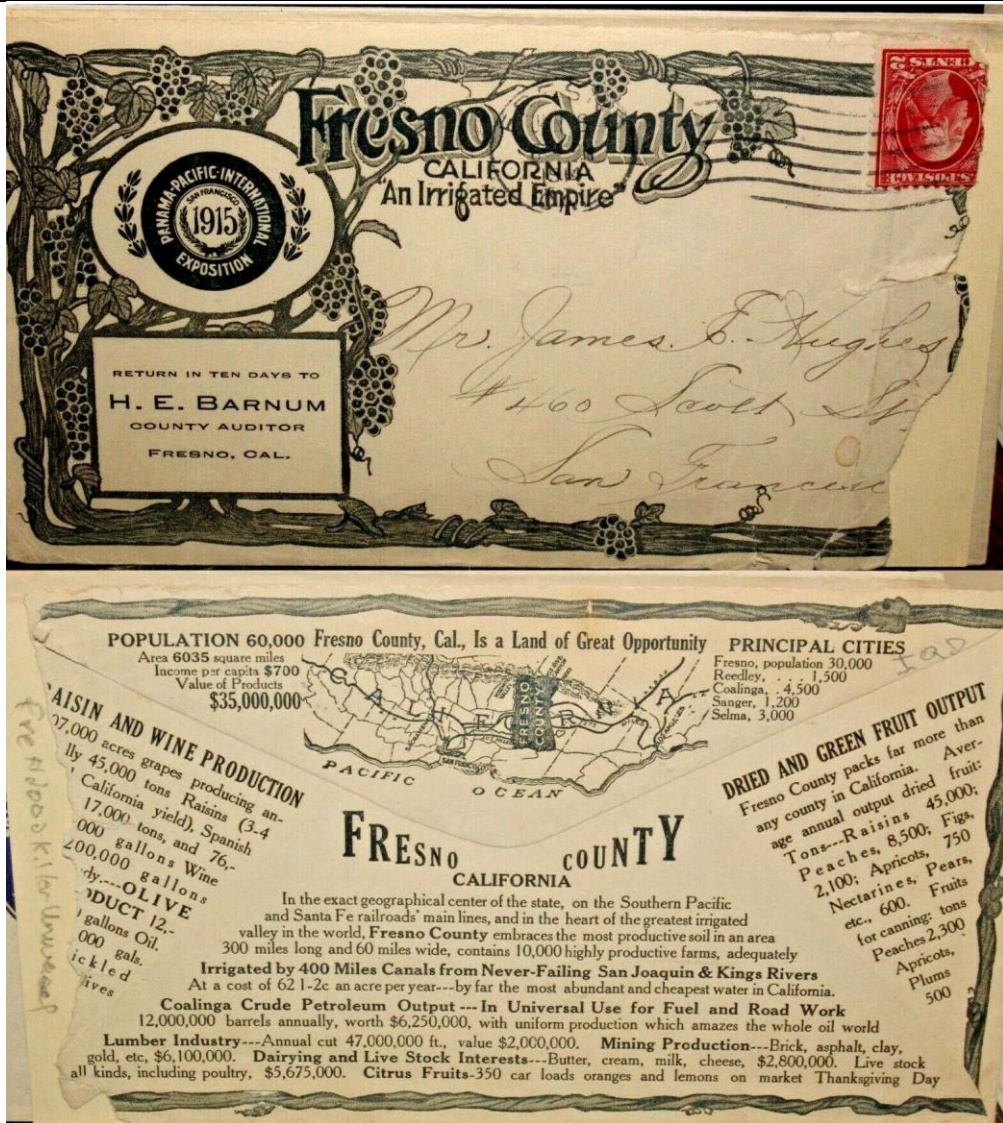 Fresno County
CALIFORNIA
"An Irrigated Empire"
PANAMA-PACIFIC-INTERNATIONAL
EXPOSITION
SAN FRANCISCO
1915
RETURN IN TEN DAYS TO
H. E. BARNUM
COUNTY AUDITOR
FRESNO, CAL.
CENTS 2
S. POSTAGE
Mr. James E. Hughes
#460 Scott St.
San Francisc
POPULATION 60,000
Area 6035 square miles
Income per capita $700
Value of Products
$35,000,000
Fresno County, Cal., Is a Land of Great Opportunity
PRINCIPAL CITIES
Fresno, population 30,000
Reedley, . . . 1,500
Coalinga, . 4,500
Sanger, 1,200
Selma, 3,000
CALIFORNIA
FRESNO
COUNTY
SAN FRANCISCO
PACIFIC OCEAN
AISIN AND WINE PRODUCTION
07,000 acres grapes producing an-
lly 45,000 tons Raisins (3-4
California yield), Spanish
17,000 tons, and 76,-
000 gallons Wine
200,000 gallons
dy.---OLIVE
ODUCT 12,-
gallons Oil.
000 gals.
ickled
lives
DRIED AND GREEN FRUIT OUTPUT
Fresno County packs far more than
any county in California. Aver-
age annual output dried fruit:
Tons---Raisins 45,000;
Peaches, 8,500; Figs,
2,100; Apricots, 750
Nectarines, Pears,
etc., 600. Fruits
for canning: tons
Peaches 2,300
Apricots,
Plums
500
FRESNO COUNTY
CALIFORNIA
In the exact geographical center of the state, on the Southern Pacific
and Santa Fe railroads' main lines, and in the heart of the greatest irrigated
valley in the world, Fresno County embraces the most productive soil in an area
300 miles long and 60 miles wide, contains 10,000 highly productive farms, adequately
Irrigated by 400 Miles Canals from Never-Failing San Joaquin & Kings Rivers
At a cost of 62 1-2c an acre per year---by far the most abundant and cheapest water in California.
Coalinga Crude Petroleum Output---In Universal Use for Fuel and Road Work
12,000,000 barrels annually, worth $6,250,000, with uniform production which amazes the whole oil world
Lumber Industry---Annual cut 47,000,000 ft., value $2,000,000. Mining Production---Brick, asphalt, clay,
gold, etc, $6,100,000. Dairying and Live Stock Interests---Butter, cream, milk, cheese, $2,800,000. Live stock
all kinds, including poultry, $5,675,000. Citrus Fruits-350 car loads oranges and lemons on market Thanksgiving Day